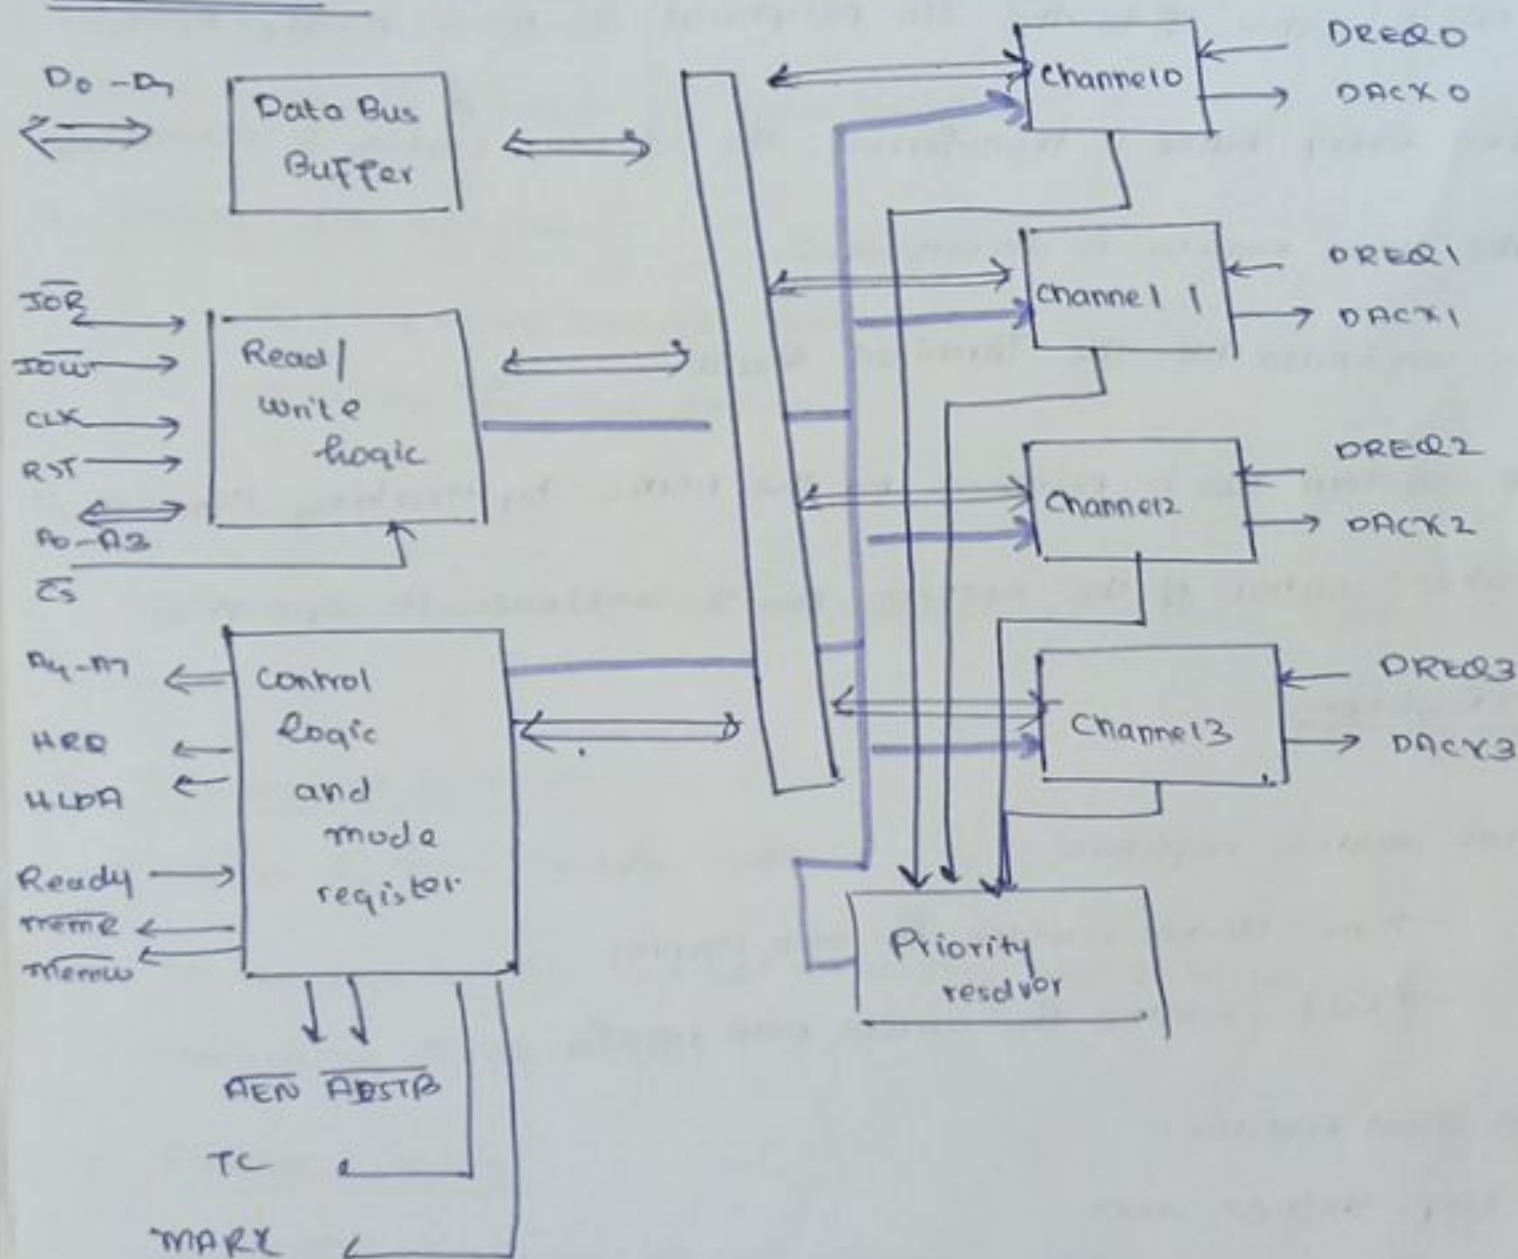 D0 - D7
Data Bus
Buffer
IOR
IOW
CLK
RST
A0 - A3
CS
Read/
write
Logic
A4 - A7
HRQ
HLDA
Ready
MEMR
MEMW
Control
logic
and
mode
register
AEN ADSTB
TC
MARK
Channel 0
DREQ0
DACK0
Channel 1
DREQ1
DACK1
Channel 2
DREQ2
DACK2
Channel 3
DREQ3
DACK3
Priority
resolvor